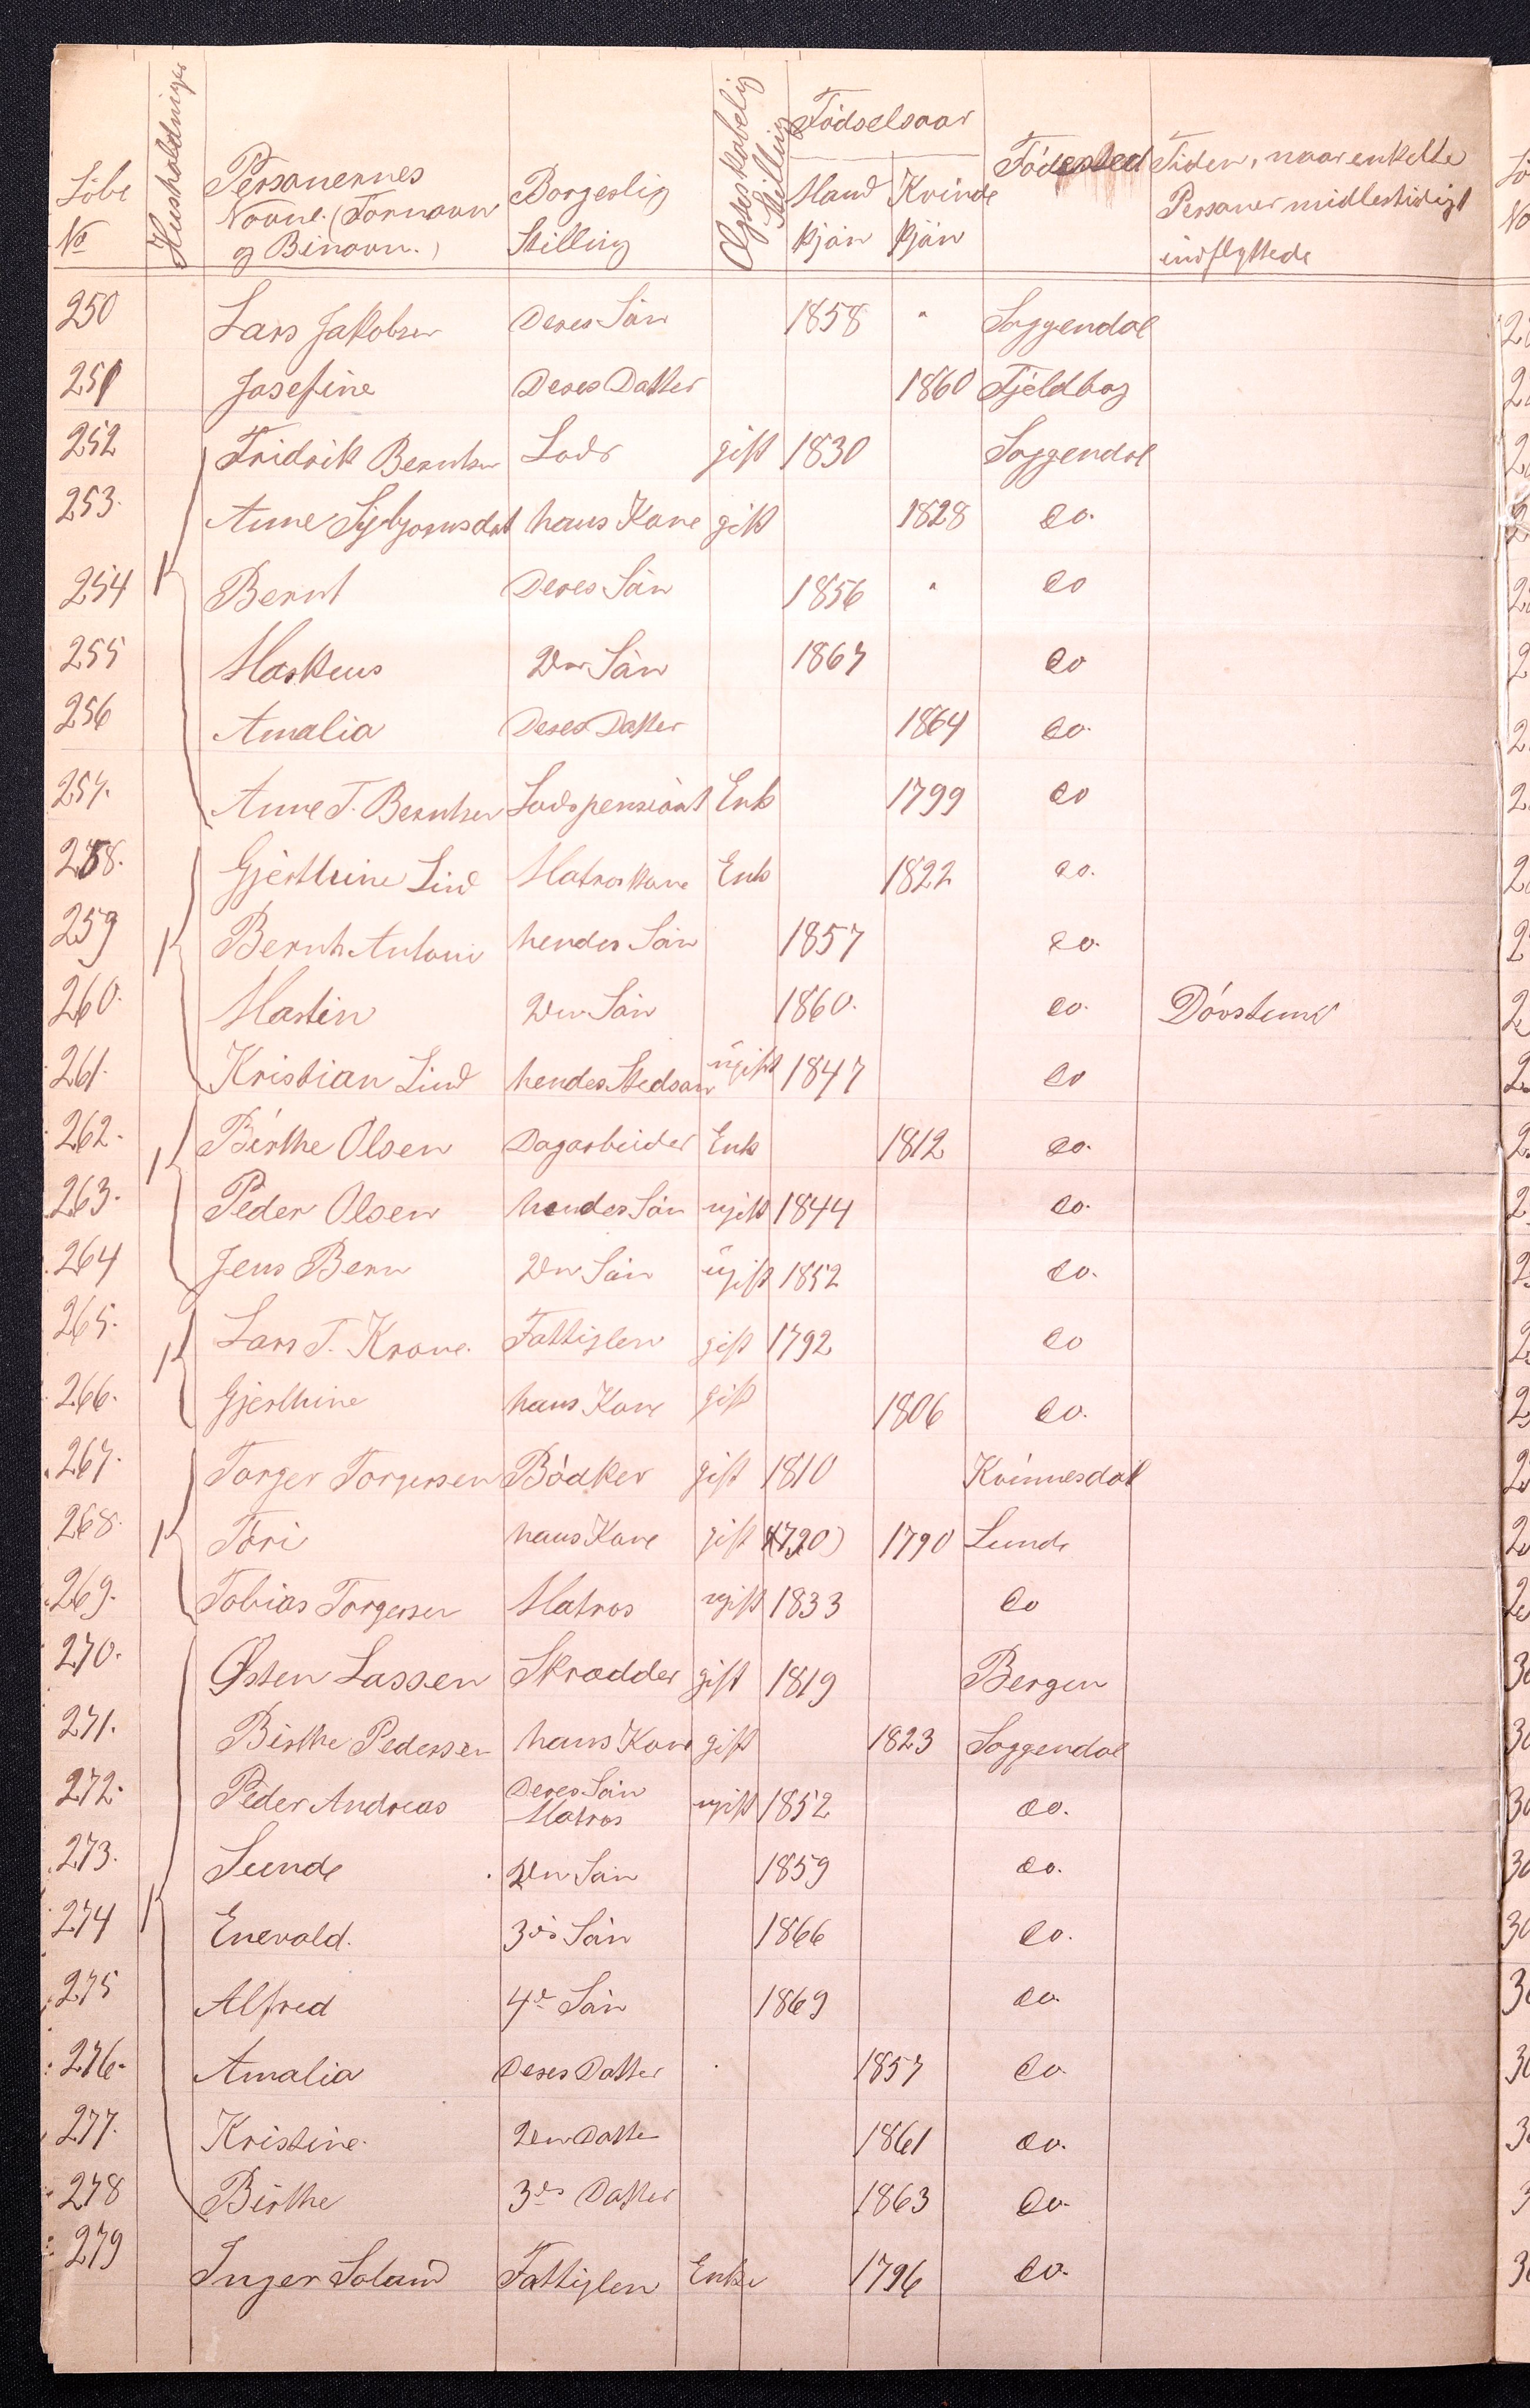 Löbe No Husholdninger Personernes Navne. (Fornavn og Binavn.) Borgerlig Stilling Ægteskabelig Stilling Födselsaar Mand kjön Kvinde kjön Födested Tiden, naar enkelte Personer midlertidigt indflyttede
250 Lars Jakobsen Deres Sön 1858 " Soggendal
251 Josefine Deres Datter 1860 Fjeldbog
252 Fridrik Berntsen Lods gift 1830 Soggendal
253. 1 Anne Sigbjornsdat hans Kone gift 1828 do.
254 Bernt Deres Sön 1856 " do
255 Markeus 2den Sön 1867 do
256 Amalia Deres Datter 1864 do.
257. Anne T. Berntsen Lodspensiönt Enk 1799 do
258. Gjerthrine Lind Matroskone Enk 1822 do.
259 1 Bernh. Antoni hendes Sön 1857 do.
260. Martin 2den Sön 1860. do. Dövstum
261. Kristian Lind hendes Stedsön ugift 1847 do
262. 1 Birthe Olsen Dagarbeider Enk 1812 do.
263. Peder Olsen hendes Sön ugift 1844 do.
264 Jens Bern 2den Sön ugift 1852 do.
265. 1 Lars T. Krone. Fattiglem gift 1792 do
266. Gjerthrine hans Kone gift 1806 do.
267. Torger Torgersen Bödker gift 1810 Kvinnesdal
268. 1 Tori hans Kone gift (1790) 1790 Lunde
269. Tobias Torgersen Matros ugift 1833 do
270. Østen Lassen Skrædder gift 1819 Bergen
271. Birthe Pedersen hans Kone gift 1823 Soggendal
272. Peder Andreas Deres Sön Matros ugift 1852 do.
273. Sunde 2den Sön 1859 do.
274 1 Enevald. 3die Sön 1866 do.
275 Alfred 4de Sön 1869 do.
276. Amalia Deres Datter 1857 do.
277. Kristine. 2den Datter 1861 do.
278 Birthe 3die Datter 1863 do.
279 Inger Soland Fattiglem Enke 1796 do.